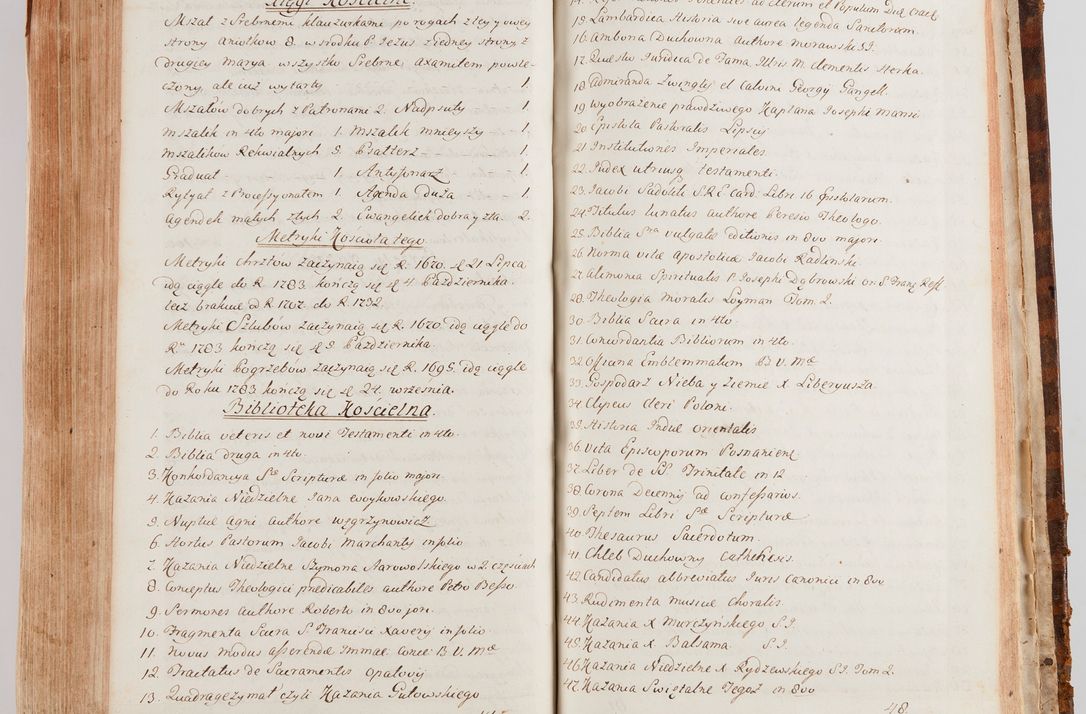 Xięgi Kościelne.
Mszał z Srebrnemi klauzurkami po rogach z tey y owey
strony aniołkow 8. w srodku P. Jezus z iedney strony, z
drugiey Marya wszystko Srebrne, axamitem powle-
czony, ale iuż wytarty 1.
Mszałów dobrych z Patronami 2. Nadpsuty 1.
Mszalek in 4to majori 1. Mszalek mnieyszy 1.
Mszalikow Rekwialnych 3. Psałterz 1.
Graduał 1. Antyfonarz 1.
Rytyał z Processyonałem 1. Agenda duża 1.
Agendek małych złych 2. Ewangeliek dobra y zła 2.
Metryki Kościoła tego.
Metryki chrztow zaczynaią się R. 1670. d 21 Lipca
idą ciągle do R. 1783 kończą się d 4. Października.
lecz brakuie od R. 1707. do R. 1732.
Metryki Szlubów zaczynaią się R. 1670. idą ciągle do
R. 1783 kończą się d 9 Października.
Metryki Pogrzebow zaczynaią się R. 1695. idą ciągle
do Roku 1783 kończą się d 24. września.
Biblioteka Kościelna.
1. Biblia veteris et novi Testamenti in 4to.
2. Biblia druga in 4to.
3. Konkordancya Sae Scripturae in folio majori.
4. Kazania Niedzielne Jana
5. Nuptiae Agni authore Węgrzynowicz
6. Hortus Pastorum Jacobi Marchanty in folio
7. Kazania Niedzielne Szymona Starowolskiego w 2. częsciach
8. Conceptus Theologici praedicabiles authore Petro Besso.
9. Sermones authore Roberto in 8vo jori.
10. Fragmenta Sacra S. Francisci Xavery in folio.
11. Novus modus asserendae Immac. Conce. B. V. Mae
12. Tractatus de Sacramentis Opatovij
13. Quadragezymał czyli Kazania Gutowskiego
ad Clerum et Populum
15. Lambardica Historia sive aurea legenda Sanctorum.
16. Ambona Duchowna authore Morawski S.J.
17. Quaestio Juridica de Fama Illris M. Clementis Herka.
18. Admiranda Zwinglij et Calvini Georgij Gangell
19. Wyobrażenie prawdziwego Kapłana Josephi Mansi
20. Epistola Pastoralis Lipscij
21. Institutiones Imperiales
22. Index utriusq testamenti.
23. Jacobi Sadoleti S.R.E. Card. Libri 16 Epistolarum.
24. Titulus lunatus authore Peresio Theologo.
25. Biblia Sra vulgatae editionis in 8vo majori.
26. Norma vitae Apostolica Jacobi Radlinski.
27. Alimonia Spiritualis P. Josephi Dąbrowski or. S. Franc. Refl.
28. Theologia Moralis Loyman Tom. 2.
30. Biblia Sacra in 4to.
31. Concordantia Bibliorum in 4to.
32. Officina Emblemmatum B. V. Mae
33. Gospodarz Nieba y Ziemie X Liberyusza.
34. Clipeus Cleri Poloni.
35. Historia Indiae orientalis
36. Vita Episcoporum Posnanien
37. Liber de SS. Trinitate in 12
38. Corona Decennij ad confessarios.
39. Septem Libri Sae Scripturae
40. Thesaurus Sacerdotum.
41. Chleb Duchowny Cathehesis.
42. Candidatus abbreviatus Juris Canonici in 8vo
43. Rudimenta Musicae Choralis.
44. Kazania X Murczyńskiego S.J.
45. Kazania X Balsama. S.J.
46. Kazania Niedzielne X Rydzewskiego S.J. Tom 2.
47. Kazania Swiętalne Tegoż in 8vo
48.